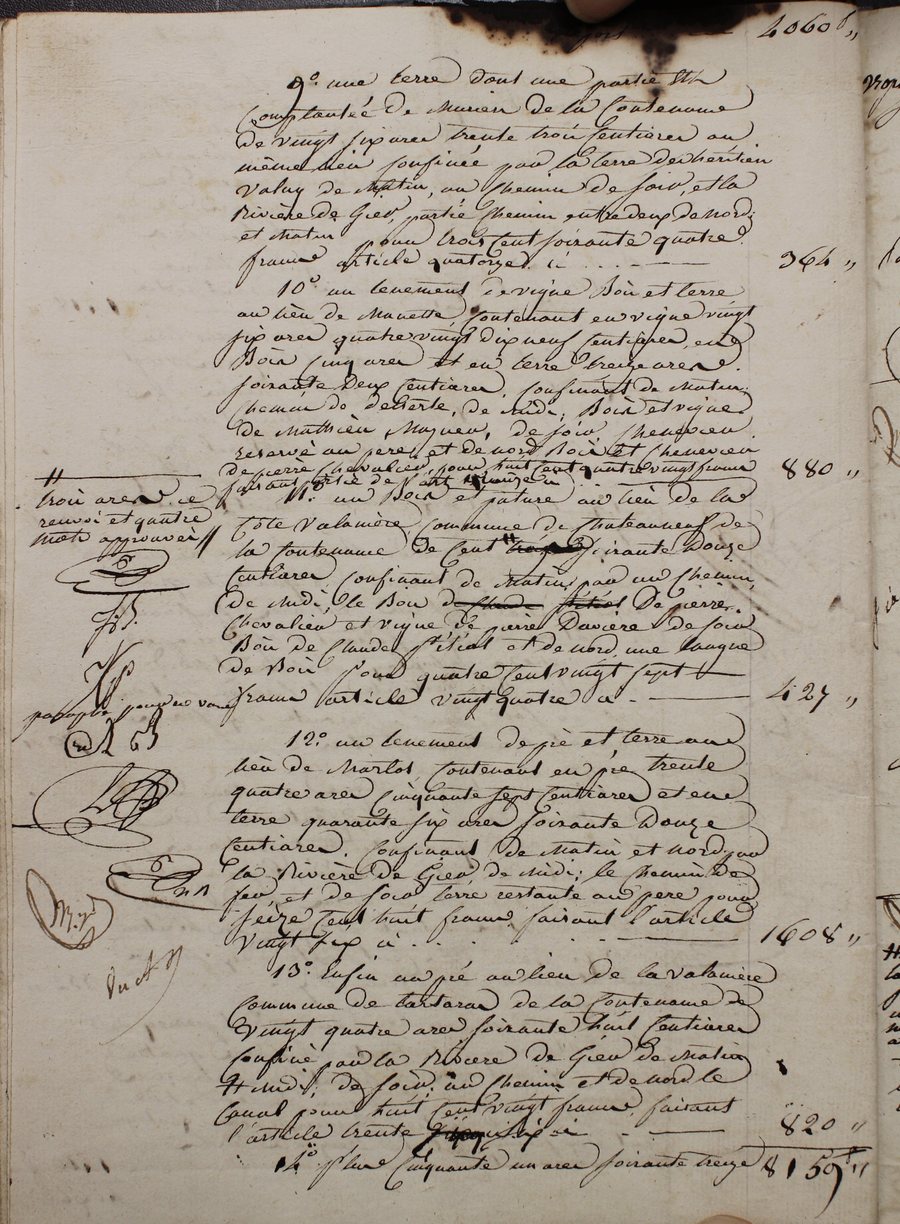 4060f "
9°. une terre dont une partie est
Complantée de Murier de la Contenance
de vingt six ares trente trois Centiares au
même lieu Confinée par la terre des héritiers
Valuy de Matin, un Chemin de soir, et la
Rivière de Gier, partie Chemin entre deux de nord
et Matin pour trois Cent soixante quatre
francs article quatorze ci . . . 364 "
10° un tenement de vigne Bois et terre
au lieu de Manette Contenant en vigne vingt
six ares quatre vingt dix neuf Centiares, en
Bois Cinq ares et en terre treize ares
soixante Deux Centiares, Confinant de Matin
Chemin de desserte, de Midi, Bois et vigne
de Mathieu, de soir Chenevier
reservé au pere, et de nord Bois et Chenevier
de pierre Chevalier, pour huit Cent quatre vingt francs 880 "
faisant partie de l'art
11° un Bois et pature au lieu de la
Côte Valamière Commune de Chateauneuf de
la Contenance de Cent soixante Douze
Centiares, Confinant de Matin, par un Chemin,
de Midi, le Bois de De pierre
Chevalier et vigne de pierre Davière de soir
Bois de Claude et de nord une langue
de Bois pour quatre Cent vingt sept
francs article vingt quatre ci . 427 "
12° un tenement de pré et terre au
lieu de Marlot Contenant en pré trente
quatre ares Cinquante sept Centiares et en
terre quarante six ares soixante Douze
Centiares, Confinant de Matin et nord par
la Rivière de Gier de Midi; le Chemin de
fer, et de soir terre restante au pere pour
seize Cent huit francs faisant l'article
vingt six ci . . . 1608 "
13° Enfin un pré au lieu de la Valamière
Commune de tartaras de la Contenance de
vingt quatre ares soixante huit Centiares
Confiné par la Rivière de Gier de Matin
Midi; de soir, un Chemin et de nord le
Canal pour huit Cent vingt francs, faisant
l'article trente ci . 820 "
14° plus Cinquante un ares soixante treize 8159f "
trois ares ce
renvoi et quatre
mots approuvés